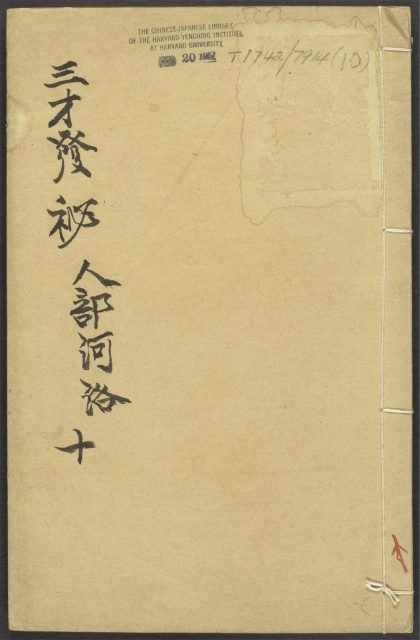 THE CHINESE-JAPANESE LIBRARY
OF THE HARVARD-YENCHING INSTITUTE
AT HARVARD UNIVERSITY
20
T1742/7914(10)
三才發祕
人部河洛
十